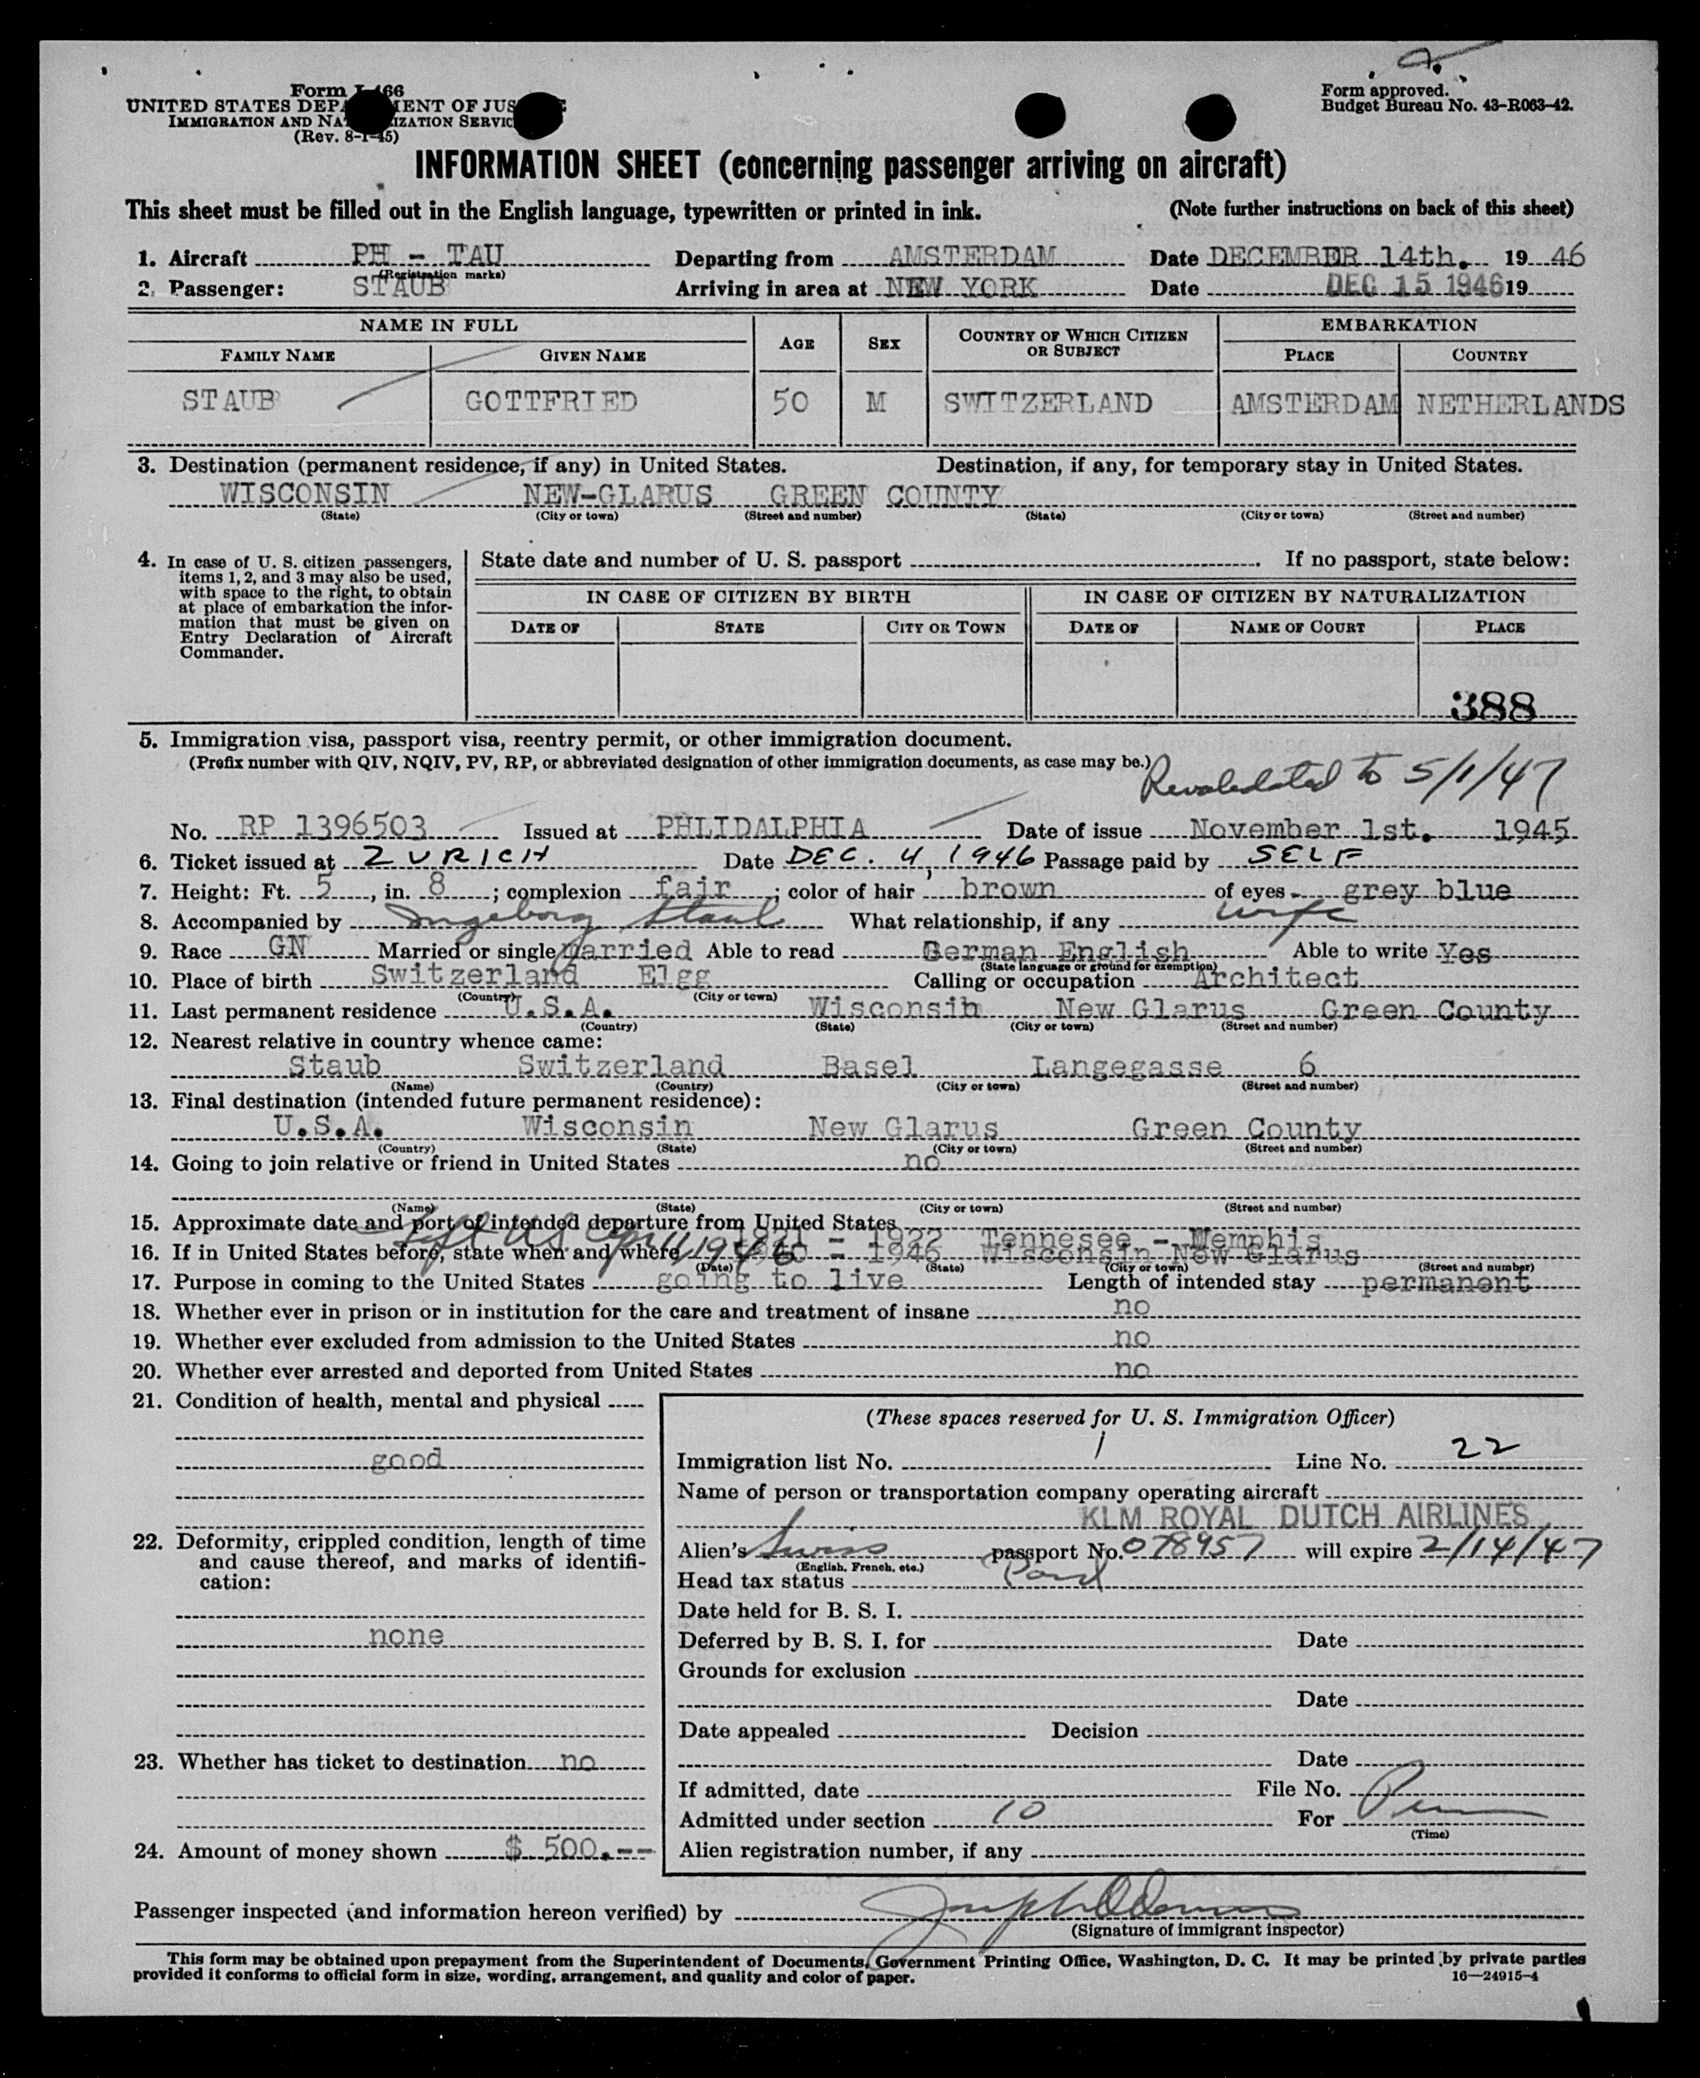 Form I-466
UNITED STATES DEPARTMENT OF JUSTICE
IMMIGRATION AND NATURALIZATION SERVICE
(Rev. 8-1-45)
Form approved.
Budget Bureau No. 43-R063-42.
INFORMATION SHEET (concerning passenger arriving on aircraft)
This sheet must be filled out in the English language, typewritten or printed in ink. (Note further instructions on back of this sheet)
1. Aircraft PH - TAU Departing from AMSTERDAM Date DECEMBER 14th. 19 46
(Registration marks)
2. Passenger: STAUB Arriving in area at NEW YORK Date DEC 15 1946 19
NAME IN FULL AGE SEX COUNTRY OF WHICH CITIZEN OR SUBJECT EMBARKATION
FAMILY NAME GIVEN NAME PLACE COUNTRY
STAUB GOTTFRIED 50 M SWITZERLAND AMSTERDAM NETHERLANDS
3. Destination (permanent residence, if any) in United States. Destination, if any, for temporary stay in United States.
WISCONSIN NEW-GLARUS GREEN COUNTY
(State) (City or town) (Street and number) (State) (City or town) (Street and number)
4. In case of U. S. citizen passengers, items 1, 2, and 3 may also be used, with space to the right, to obtain at place of embarkation the information that must be given on Entry Declaration of Aircraft Commander.
State date and number of U. S. passport . If no passport, state below:
IN CASE OF CITIZEN BY BIRTH IN CASE OF CITIZEN BY NATURALIZATION
DATE OF STATE CITY OR TOWN DATE OF NAME OF COURT PLACE
388
5. Immigration visa, passport visa, reentry permit, or other immigration document.
(Prefix number with QIV, NQIV, PV, RP, or abbreviated designation of other immigration documents, as case may be.)
Revalidated to 5/1/47
No. RP 1396503 Issued at PHLIDALPHIA Date of issue November 1st. 1945
6. Ticket issued at ZURICH Date DEC. 4, 1946 Passage paid by SELF
7. Height: Ft. 5, in. 8; complexion fair; color of hair brown of eyes grey blue
8. Accompanied by Ingeborg Staub What relationship, if any wife
9. Race GN Married or single Married Able to read German English Able to write Yes
(State language or ground for exemption)
10. Place of birth Switzerland Elgg Calling or occupation Architect
(Country) (City or town)
11. Last permanent residence U.S.A. Wisconsin New Glarus Green County
(Country) (State) (City or town) (Street and number)
12. Nearest relative in country whence came:
Staub Switzerland Basel Langegasse 6
(Name) (Country) (City or town) (Street and number)
13. Final destination (intended future permanent residence):
U.S.A. Wisconsin New Glarus Green County
(Country) (State) (City or town) (Street and number)
14. Going to join relative or friend in United States no
(Name) (State) (City or town) (Street and number)
15. Approximate date and port of intended departure from United States
Left US Apr 11, 1946 1921 - 1922 Tennesee - Memphis
16. If in United States before, state when and where - 1946 Wisconsin New Glarus
(Date) (State) (City or town) (Street and number)
17. Purpose in coming to the United States going to live Length of intended stay permanent
18. Whether ever in prison or in institution for the care and treatment of insane no
19. Whether ever excluded from admission to the United States no
20. Whether ever arrested and deported from United States no
21. Condition of health, mental and physical
good
22. Deformity, crippled condition, length of time and cause thereof, and marks of identification:
none
23. Whether has ticket to destination no
24. Amount of money shown $ 500.--
(These spaces reserved for U. S. Immigration Officer)
Immigration list No. 1 Line No. 22
Name of person or transportation company operating aircraft
KLM ROYAL DUTCH AIRLINES
Alien's Swiss passport No. 078957 will expire 2/14/47
(English, French, etc.)
Head tax status Paid
Date held for B. S. I.
Deferred by B. S. I. for Date
Grounds for exclusion
Date
Date appealed Decision
Date
If admitted, date File No.
Admitted under section 10 For
(Time)
Alien registration number, if any
Passenger inspected (and information hereon verified) by
(Signature of immigrant inspector)
This form may be obtained upon prepayment from the Superintendent of Documents, Government Printing Office, Washington, D. C. It may be printed by private parties
provided it conforms to official form in size, wording, arrangement, and quality and color of paper. 16—24915-4